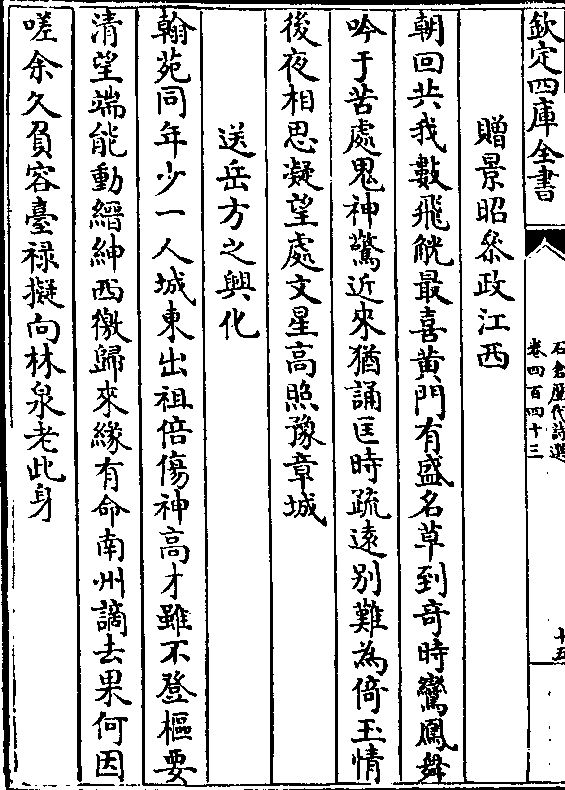 欽定四庫全書
石倉歷代詩選
卷四百四十三
十五
贈景昭叅政江西
朝回共我數飛觥最喜黄門有盛名草到奇時鸞鳳舞
吟于苦處鬼神驚近來猶誦匡時疏遠别難為倚玉情
後夜相思凝望處文星高照豫章城
送岳方之興化
翰苑同年少一人城東出祖倍傷神高才雖不登樞要
清望端能動縉紳西徼歸來緣有命南州謫去果何因
嗟余久負容臺禄擬向林泉老此身